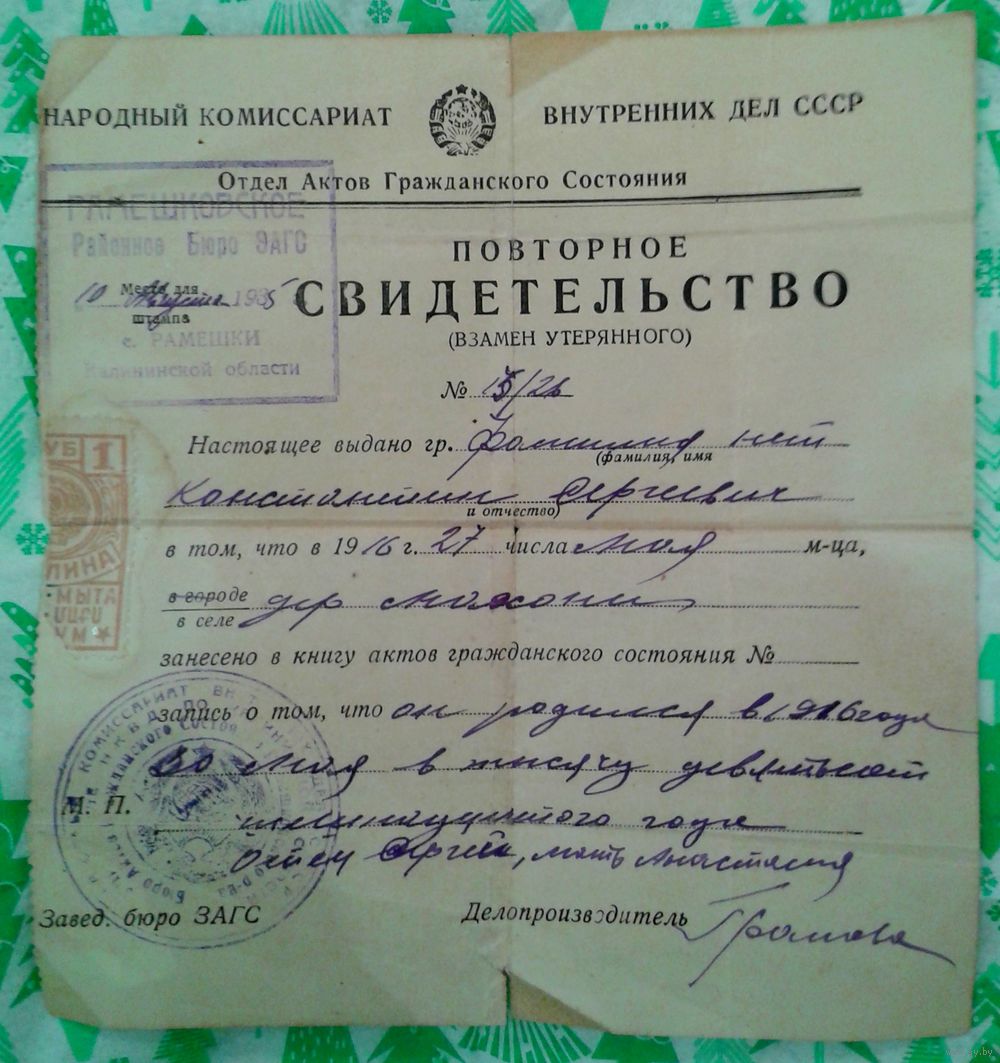 НАРОДНЫЙ КОМИССАРИАТ ВНУТРЕННИХ ДЕЛ СССР
Отдел Актов Гражданского Состояния
РАМЕШКОВСКОЕ
Районное Бюро ЗАГС
Место для
10 Августа 1935
штампа
с. РАМЕШКИ
Калининской области
ПОВТОРНОЕ
СВИДЕТЕЛЬСТВО
(ВЗАМЕН УТЕРЯННОГО)
№ 15/26
Настоящее выдано гр. Фамилия нет
(фамилия, имя
Константин Сергеевич
и отчество)
в том, что в 1916 г. 27 числа мая м-ца,
в городе
в селе дер
занесено в книгу актов гражданского состояния №
запись о том, что он родился в 1916 году
мая в тысячу девятьсот
шестнадцатого года
Отец Сергей, мать Анастасия
М. П.
Завед. бюро ЗАГС Делопроизводитель
УБ 1